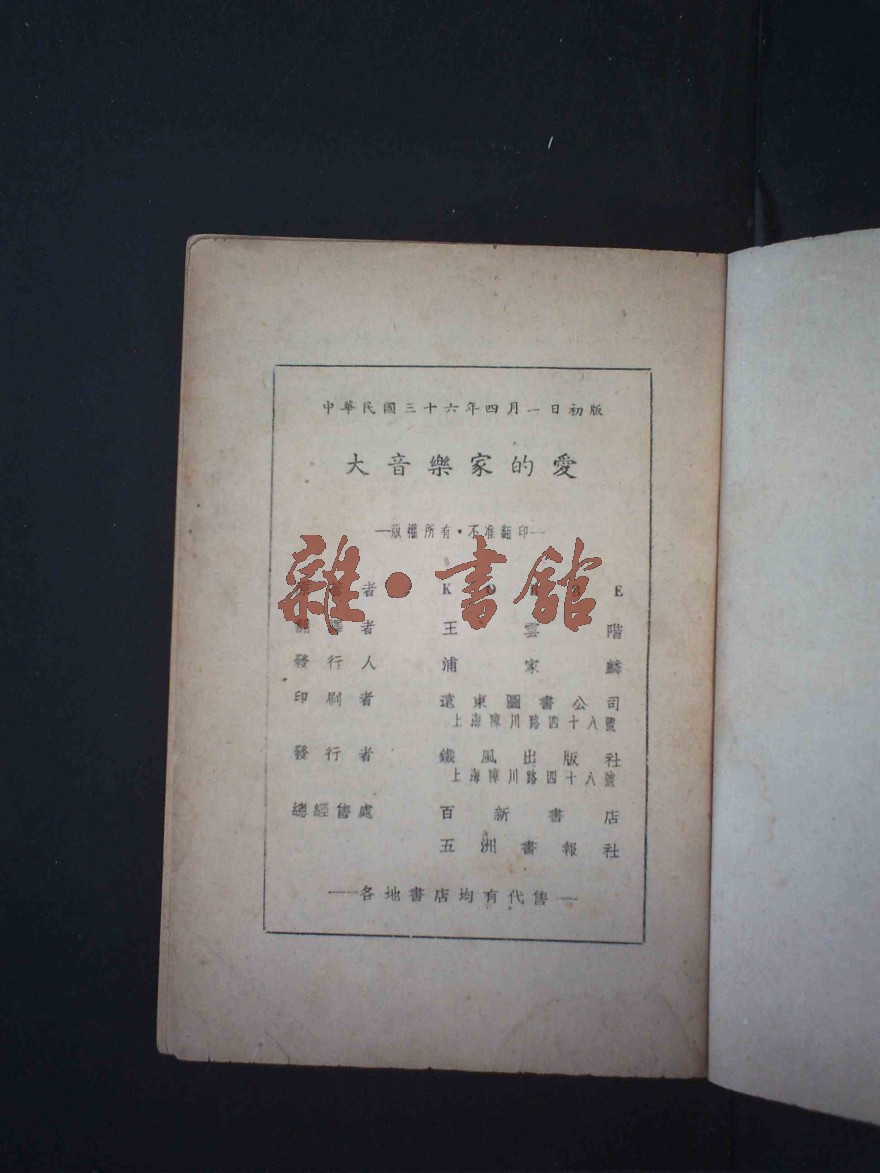 中華民國三十六年四月一日初版
大音樂家的愛
—版權所有·不准翻印—
雜·書館
者 K O E
翻譯者 王雲階
發行人 浦家麟
印刷者 遠東圖書公司
上海陳川路四十八號
發行者 鐵風出版社
上海陳川路四十八號
總經售處 百新書店
五洲書報社
——各地書店均有代售——